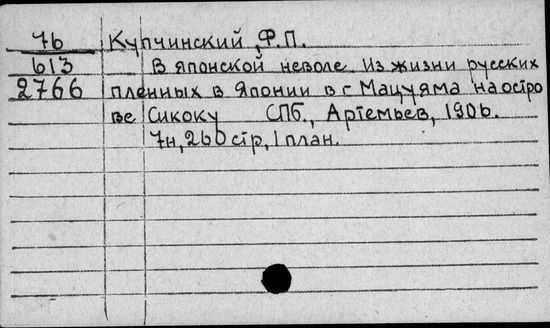 76 Купчинский, Ф.П.
613 В японской неволе. Из жизни русских
2766 пленных в Японии в г Мацуяма на остро
ве Сикоку СПб., Артемьев, 1906.
7н, 260 стр, 1 план.